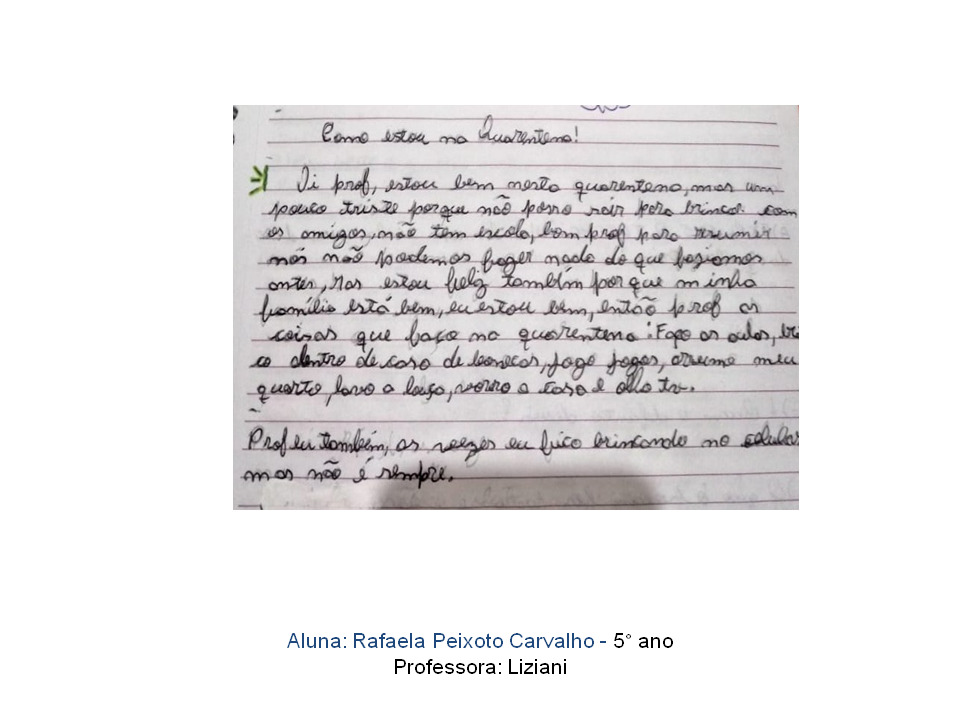 Como estou na Quarentena!
Oi prof, estou bem nesta quarentena, mas um
pouco triste porque não posso sair para brincar com
os amigos, não tem escola, bom prof para resumir
nós não podemos fazer nada do que faziamos
antes, mas estou feliz também porque minha
família está bem, eu estou bem, então prof as
coisas que faço na quarentena: Faço as aulas, bri
co dentro de casa de bonecas, jogo jogos, arrumo meu
quarto, lavo a louça, varro a casa e olho tv.
Prof eu também, as vezes eu fico brincando no celular
mas não é sempre.
Aluna: Rafaela Peixoto Carvalho - 5° ano
Professora: Liziani